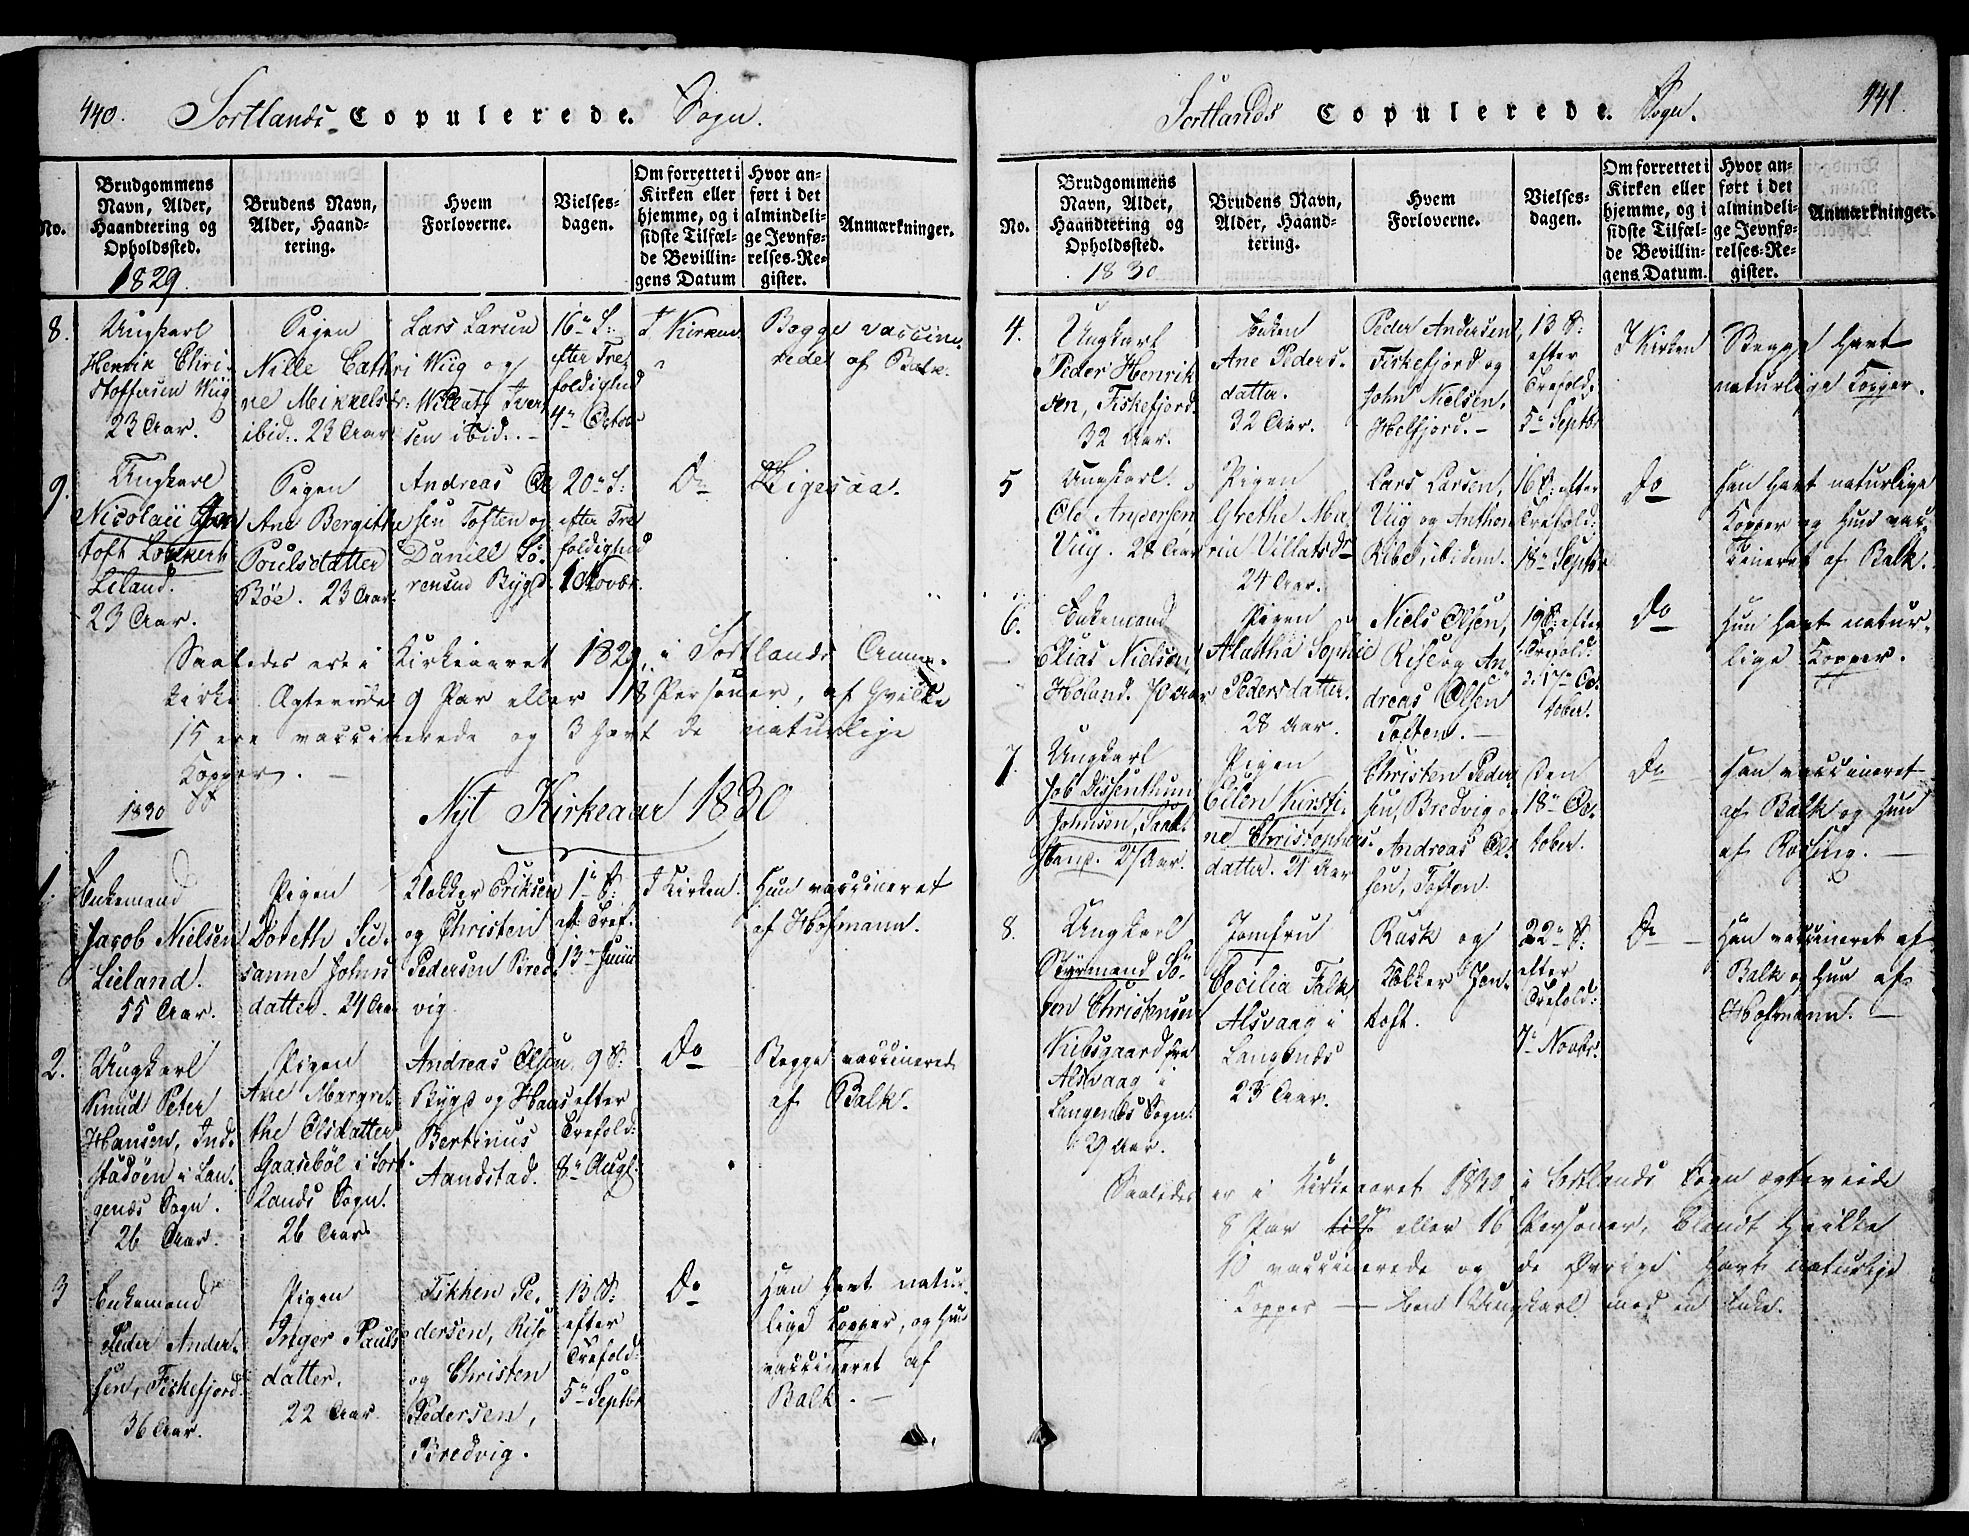 440. Sortlands Copulerede. Sogn.
No.
Brudgommens
Navn, Alder,
Haandtering og
Opholdssted.
1829.
Brudens Navn,
Alder, Haand-
tering.
Hvem
Forloverne.
Vielses-
dagen.
Om forrettet i
Kirken eller
hjemme, og i
sidste Tilfæl-
de Bevillin-
gens Datum
Hvor an-
ført i det
almindeli-
ge Jevnfø-
relses-Re-
gister.
Anmærkninger.
8.
Ungkarl
Henrik Chri-
stoffersen Wiig
23 Aar.
Pigen
Nille Cathri
ne Mikkelsdr:
ibid:. 23 Aar
Lars Larsen
Wiig og
Willats Iver
sen ibid:. -
16de S:
efter Tre
foldighed
4de Octob:
I Kirken
Begge vaccine
rede af Balk.
9.
Ungkarl
Nicolaii Jen
toft Lockert
Leland.
23 Aar.
Pigen
Ane Bergithe
Poulsdatter
Böe. 23 Aar.
Andreas Ol
sen Toften og
Daniel Sö-
rensen Bygd.
20de S:
efter Tre
foldighed
1 Novbr.
Do
Ligesaa.
Saaledes ere i Kirkeaaret 1829, i Sortlands Annex-
kirke Ægteviede 9 Par eller 18 Personer, af hvilke
15 ere vaccinerede og 3 havt de naturlige
Kopper. -
1830
Nyt Kirkeaar 1830
1.
Enkemand
Jacob Nielsen
Lieland.
55 Aar.
Pigen
Doreth Su-
sanne Johns
datter. 24 Aar
Klokker Eriksen
og Christen
Pedersen Bred-
vig
1ste S:
eft Tref.
13de Junii
I Kirken.
Hun vaccineret
af Hofmann.
2.
Ungkarl
Knud Peter
Hansen, Ind-
stadöen i Lan-
genæs Sogn.
26 Aar.
Pigen
Ane Margret
the Olsdatter
Gaaseböl i Sort-
lands Sogn.
26 Aar
Andreas Olsen
Bygd og Hans
Bertinus
Aandstad.
9 S:
efter
Trefold:
8de Augs.
Do
Begge vaccinerede
af Balk.
3
Enkemand
Peder Ander-
sen, Fiskefjord
36 Aar.
Pigen
Inger Pauls
datter.
22 Aar.
Tikhen Pe-
dersen, Risö
og Christen
Pedersen,
Bredvig.
13 S:
efter
Trefold:
5de Septbr
Do
Han havt natur-
lige Kopper, og hun
vaccineret af
Balk. -
Sortlands Copulerede. Sogn. 441.
No.
Brudgommens
Navn, Alder,
Haandtering og
Opholdssted.
1830
Brudens Navn,
Alder, Haand-
tering.
Hvem
Forloverne.
Vielses-
dagen.
Om forrettet i
Kirken eller
hjemme, og i
sidste Tilfæl-
de Bevillin-
gens Datum.
Hvor an-
ført i det
almindeli-
ge Jevnfø-
relses-Re-
gister.
Anmærkninger.
4.
Ungkarl
Peder Henrik
sen, Fiskefjord.
32 Aar.
Enken
Ane Peders-
datter.
32 Aar.
Peder Andersen,
Fiskefjord og
John Nielsen.
Holfjord. -
13 S:
efter
Trefold:
5de Septbr
I Kirken
Begge havt
naturlige Kopper.
5
Ungkarl.
Ole Andersen
Viig. 28 Aar
Pigen
Grethe Ma-
ria Villatsdr
24 Aar.
Lars Larsen,
Viig og Anthon
Ribe, ibidem.
16 S: efter
Trefold:
18de Septbr
Do
Han havt naturlige
Kopper og hun vac-
cineret af Balk.
6.
Enkemand
Elias Nielsen
Holand. 70 Aar
Pigen
Alatha Sophie
Pedersdatter.
28 Aar.
Niels Olsen,
Risö og An-
dreas Olsen
Toften. -
19 S: efter
Trefold:
d. 17de Oc-
tober.
Do
Hun havt natur-
lige Kopper.
7.
Ungkarl
Job Dissenthun
Johnsen, Sand-
. 27 Aar.
Pigen
Ellen Kirsti-
ne Christophers-
datter. 21 Aar
Christen Peder
sen, Bredvig og
Andreas Ol-
sen, Toften.
Den
18de Oc-
tober.
Do
Han vaccineret
af Balk og hun
af Rosing. -
8.
Ungkarl
Styrmand Sö-
ren Christensen
Kibsgaard fra
Alsvaag i
Langenæs Sogn.
29 Aar.
Jomfru
Cecilia Falk,
Alsvaag i
Langenæs
23 Aar.
Rask og
Klokker Jen-
toft.
22de S:
efter
Trefold:
7de Novbr.
Do
Han vaccineret af
Balk og hun af
Hofmann. -
Saaledes er i Kirkeaaret 1830, i Sortlands Sogn ægteviede
8 Par eller 16 Personer, blandt hvilke
10 vaccinerede og de øvrige havt naturlige
Kopper - Een Ungkarl med en Enke.